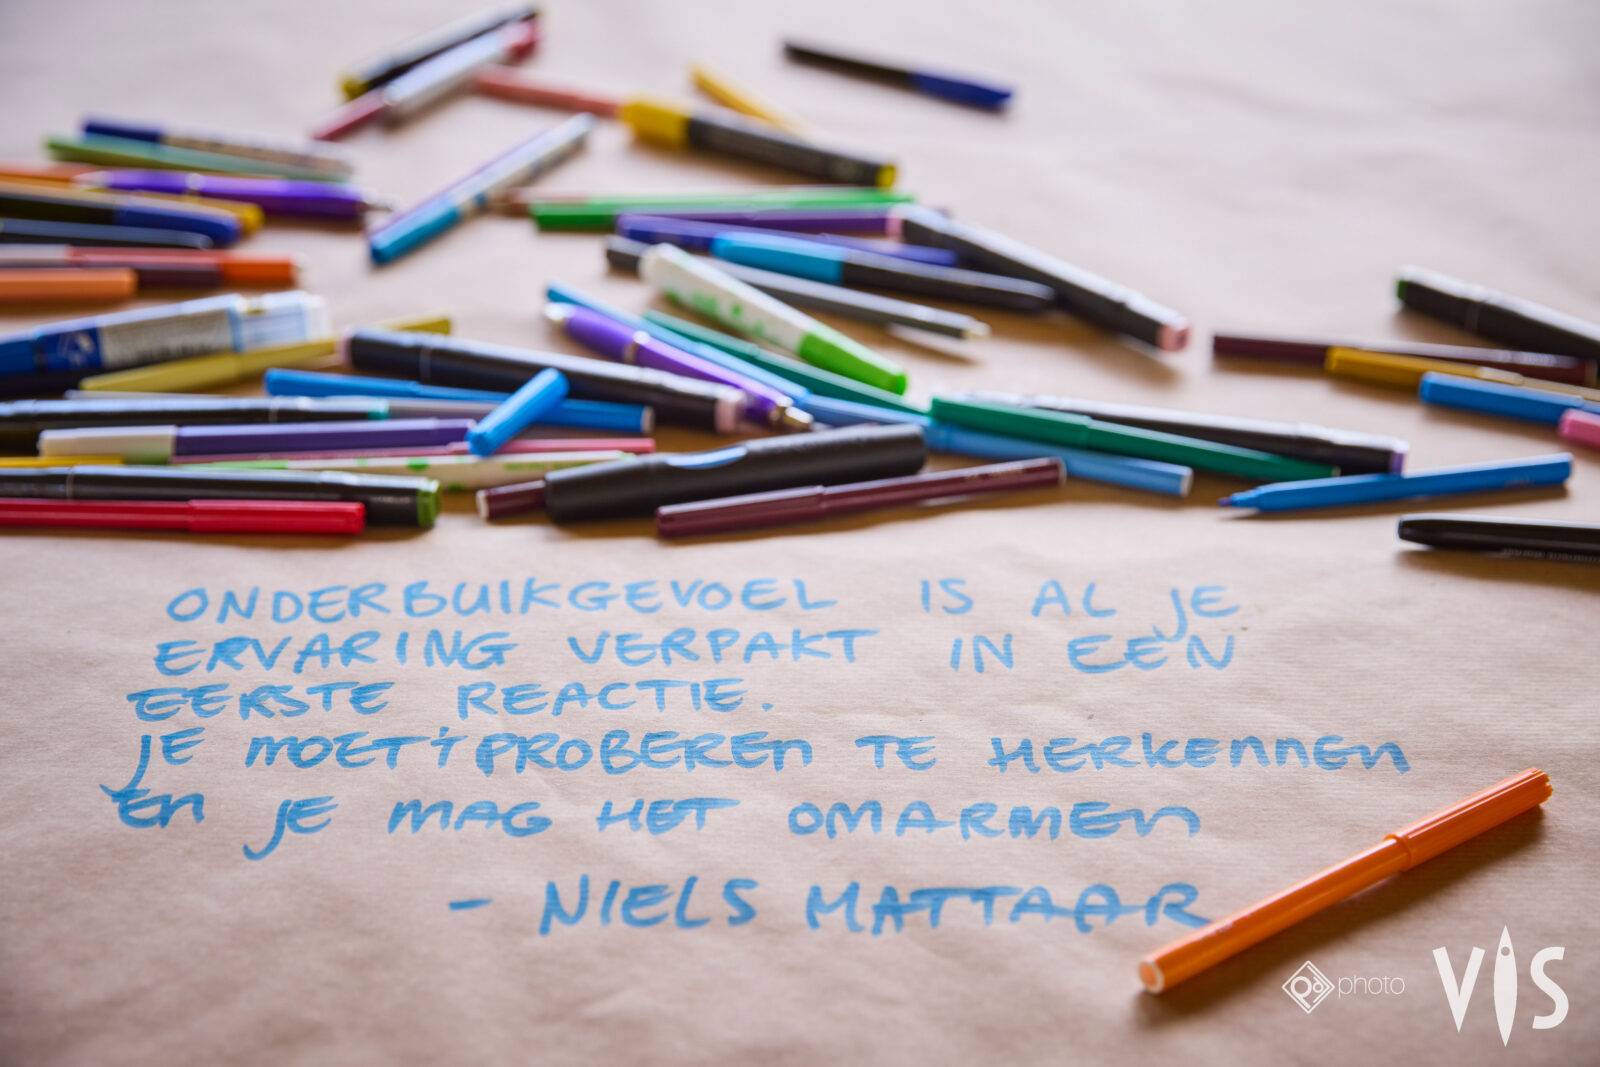 ONDERBUIKGEVOEL IS AL JE
ERVARING VERPAKT IN EEN
EERSTE REACTIE.
JE MOET 't PROBEREN TE HERKENNEN
EN JE MAG HET OMARMEN
- NIELS MATTAAR
photo
VIS